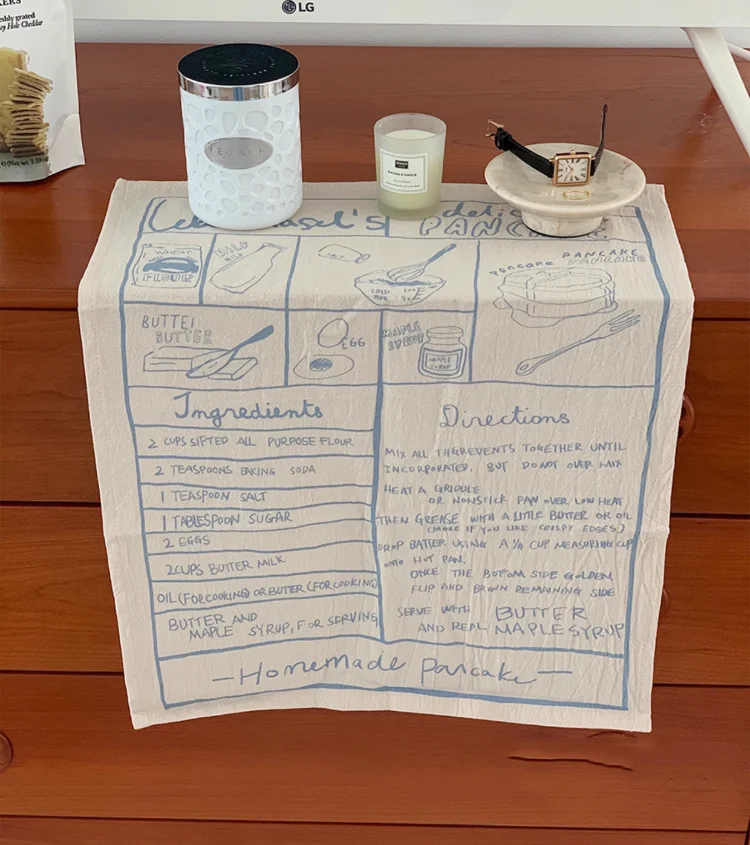 LG
WHEAT
FLOUR
PANCAKE
PANCAKE
BUTTER
BUTTER
EGG
MAPLE
SYRUP
MAPLE
SYRUP
Ingredients
2 CUPS SIFTED ALL PURPOSE FLOUR
2 TEASPOONS BAKING SODA
1 TEASPOON SALT
1 TABLESPOON SUGAR
2 EGGS
2 CUPS BUTTER MILK
OIL (FOR COOKING) OR BUTTER (FOR COOKING)
BUTTER AND
MAPLE SYRUP, FOR SERVING
Directions
MIX ALL INGREDIENTS TOGETHER UNTIL
INCORPORATED. BUT DO NOT OVER MIX
HEAT A GRIDDLE
OR NONSTICK PAN OVER LOW HEAT
THEN GREASE WITH A LITTLE BUTTER OR OIL
(MORE IF YOU LIKE CRISPY EDGES)
DROP BATTER USING A 1/4 CUP MEASURING CUP
ONTO HOT PAN.
ONCE THE BOTTOM SIDE GOLDEN,
FLIP AND BROWN REMAINING SIDE
SERVE WITH BUTTER
AND REAL MAPLE SYRUP
- Homemade pancake -